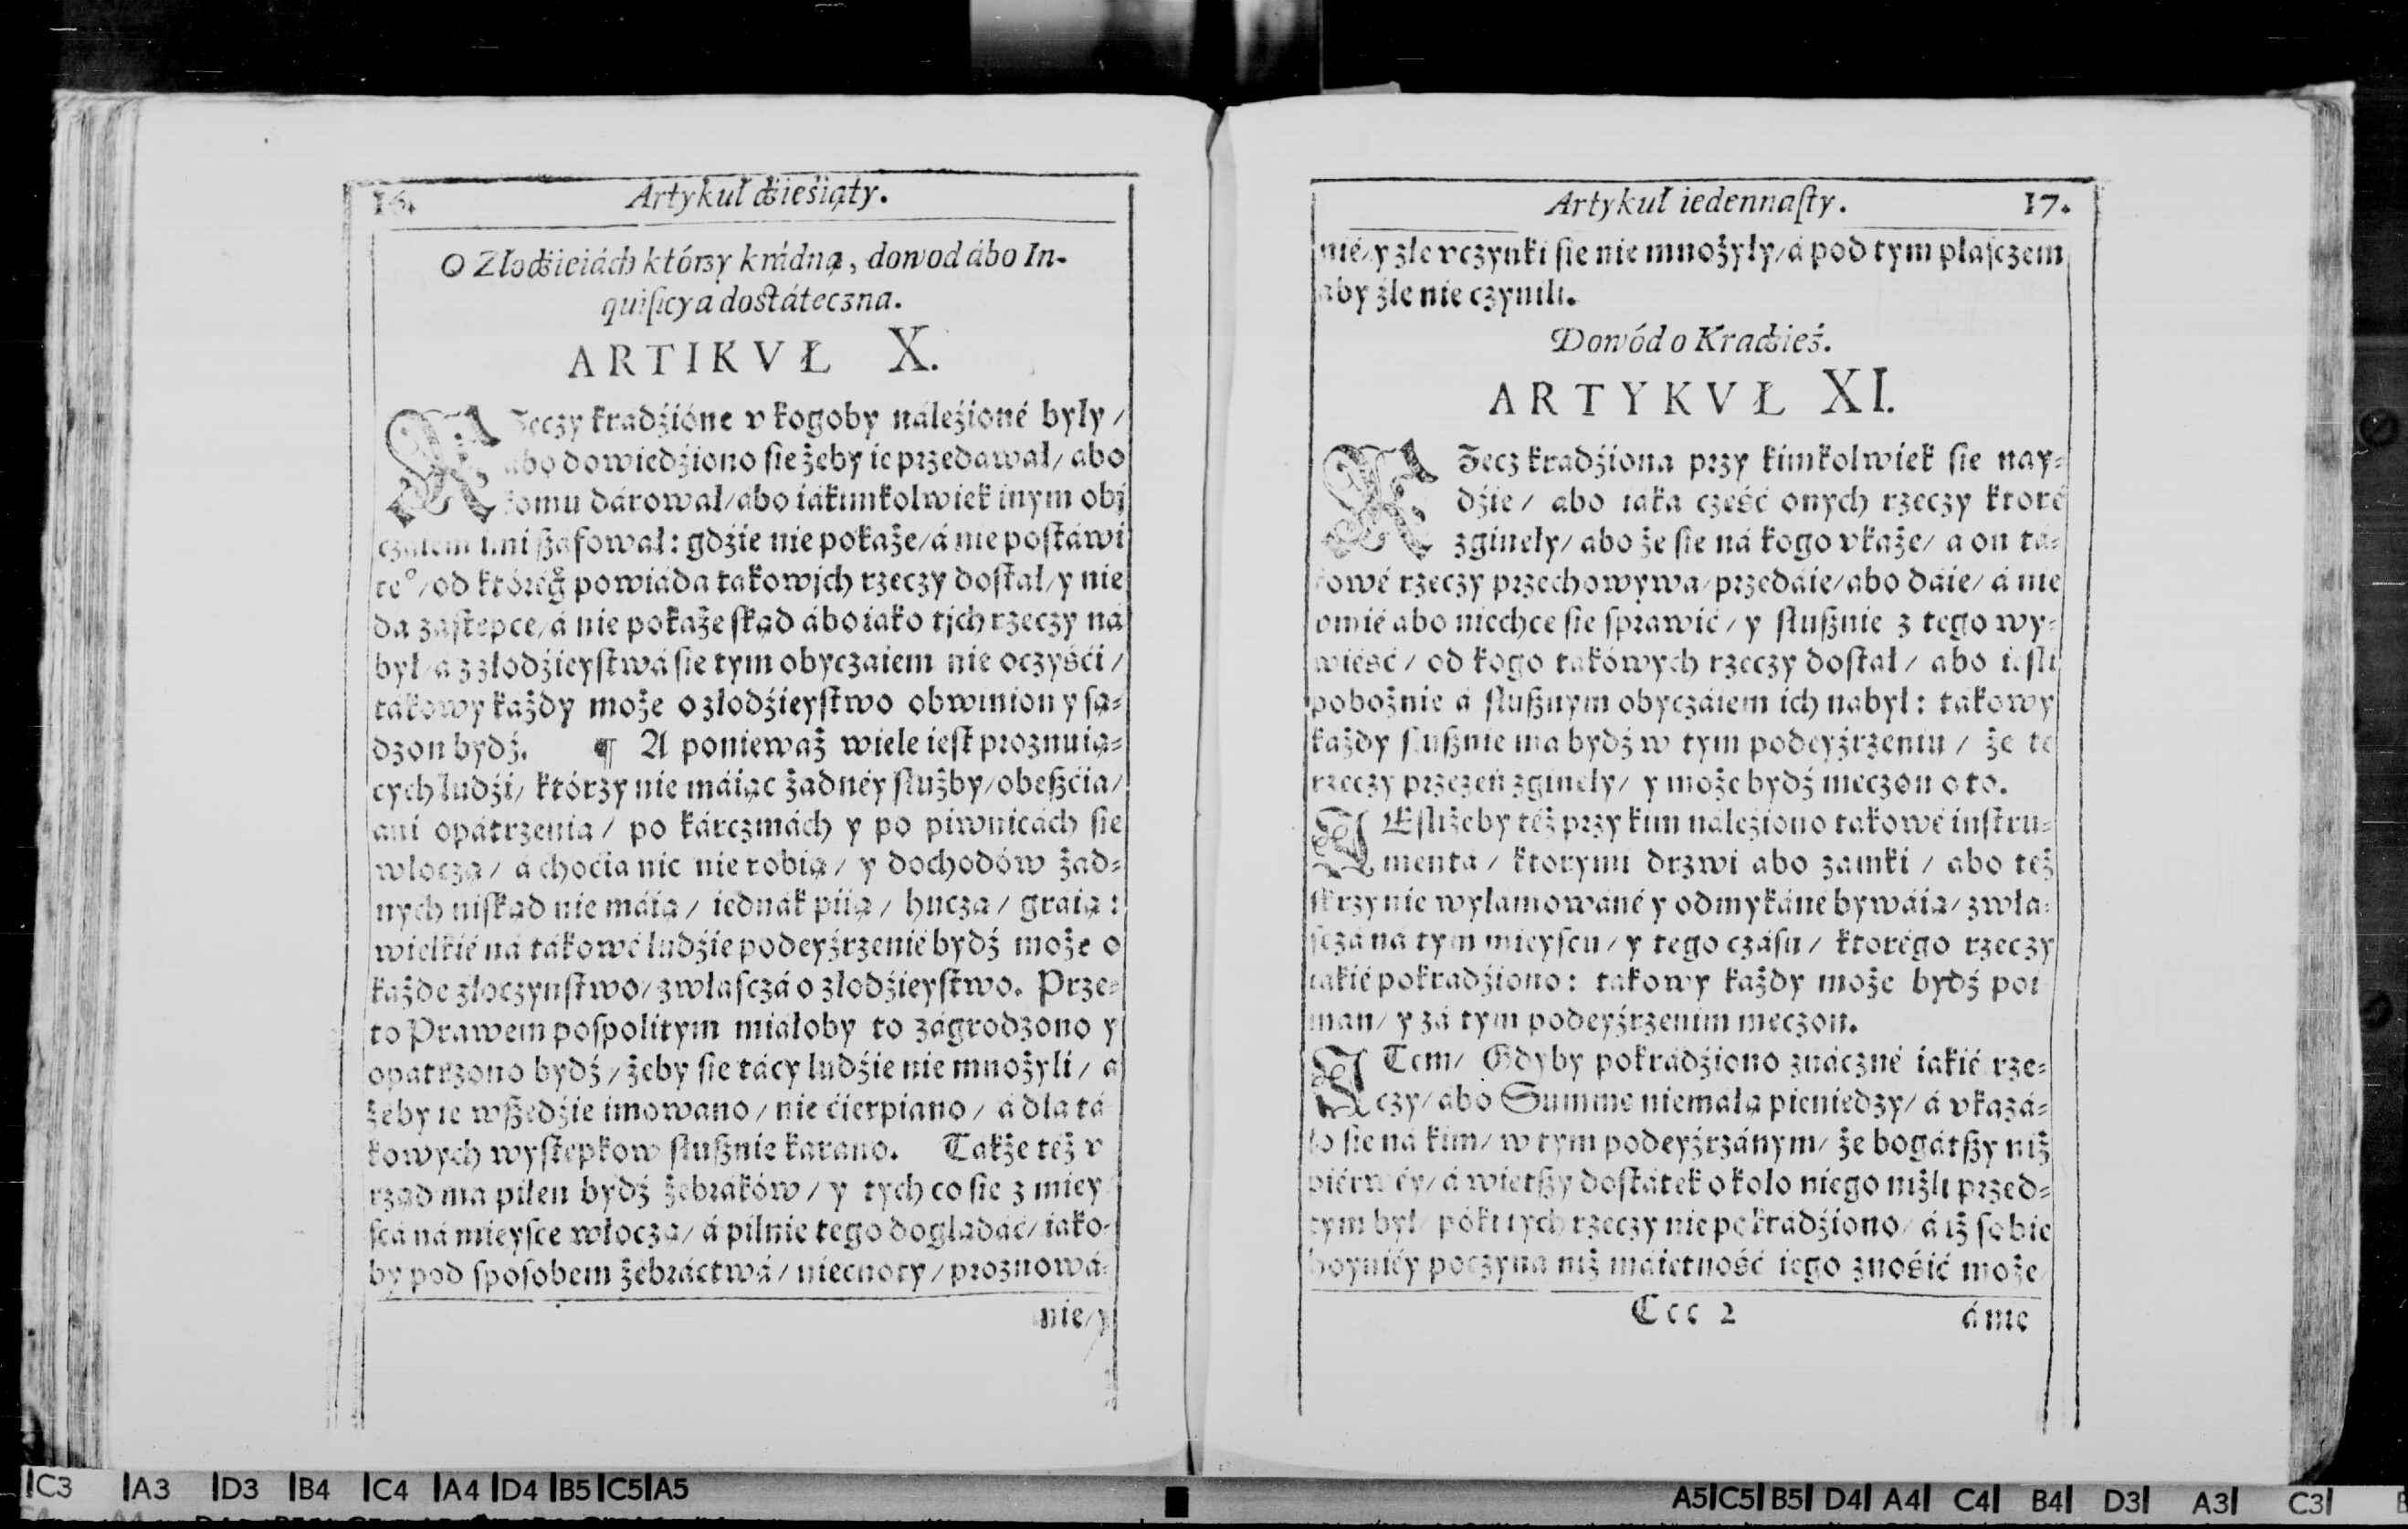 16. Artykuł dźieśiąty.
O Złodźieiách którzy krádną, dowod ábo In-
quiſicya doſtáteczna.
ARTIKVŁ X.
RZeczy kradźióne v kogoby náleźioné były/
abo dowiedźiono ſie żeby ie przedawał/ abo
komu dárował/ abo iákimkolwiek inym oby
czáiem imi ſzáfował: gdźie nie pokaże/ á nie poſtáwi
te°/ od którég° powiáda takowych rzeczy doſtał/ y nie
da zaſtepce/ á nie pokaże ſkąd ábo iako tych rzeczy ná
był/ a z złodźieyſtwá ſie tym obyczaiem nie oczyśći/
takowy każdy może o złodźieyſtwo obwinion y ſą-
dzon bydź. ¶ A ponieważ wiele ieſt proznuią-
cych ludźi/ którzy nie máiąc żadnéy ſłużby/ obeſzćia/
ani opátrzenia/ po kárczmách y po piwnicách ſie
włoczą/ á choćia nic nie robią/ y dochodów żad-
nych niſkąd nie máią/ iednák piią/ huczą/ graią:
wielkié ná tákowé ludźie podeyźrzenié bydź może o
każde złoczynſtwo/ zwłaſczá o złodźieyſtwo. Prze-
to Prawem poſpolitym miáłoby to zágrodzono y
opatrzono bydź/ żeby ſie tácy ludźie nie mnożyli/ a
żeby ie wſzedźie imowano/ nie ćierpiano/ á dla tá
kowych wyſtepkow ſłuſznie karano. Także téż v
rząd ma pilen bydź żebraków/ y tych co ſie z miey
ſcá ná mieyſce włoczą/ á pilnie tego dogladáć/ iako-
by pod ſpoſobem żebráctwá/ niecnoty/ proznowá-
nie/ y
Artykuł iedennaſty. 17.
nié/ y złe vczynki ſie nie mnożyły/ á pod tym płaſczem
aby źle nie czynili.
Dowód o Kradźież.
ARTYKVŁ XI.
RZecz kradźiona przy kimkolwiek ſie nay-
dźie/ abo iaka cześć onych rzeczy ktoré
zginęły/ abo że ſie ná kogo vkaże/ a on tá-
kowé rzeczy przechowywa/ przedáie/ abo dáie/ á nie
vmié abo niechce ſie ſprawić/ y ſłuſznie z tego wy-
wieść/ od kogo takówych rzeczy doſtał/ abo ieſli
pobożnie á ſłuſznym obyczáiem ich nabył: takowy
każdy ſłuſznie ma bydź w tym podeyźrzeniu/ że te
rzeczy przezeń zginęły/ y może bydź meczon o to.
IEſliżeby też przy kim náleźiono takowé inſtru-
menta/ ktorymi drzwi abo zamki/ abo też
ſkrzynie wyłamowáné y odmykáne bywáią/ zwła-
ſczá ná tym mieyſcu/ y tego czáſu/ ktorégo rzeczy
takié pokradźiono: takowy każdy może bydź poi
man/ y zá tym podeyźrzenim meczon.
ITem/ Gdyby pokrádźiono znáczné iakié rze-
czy/ abo Summe niemałą pieniedzy/ á vkazá-
ło ſie ná kim/ w tym podeyźrzánym/ że bogátſzy niż
piérwéy/ á wietſzy doſtátek około niego niżli przed-
tym był/ póki tych rzeczy nie pokrádźiono/ á iż ſobie
hoyniéy poczyna niż máietność iego znośić może/
Ccc 2 á nie